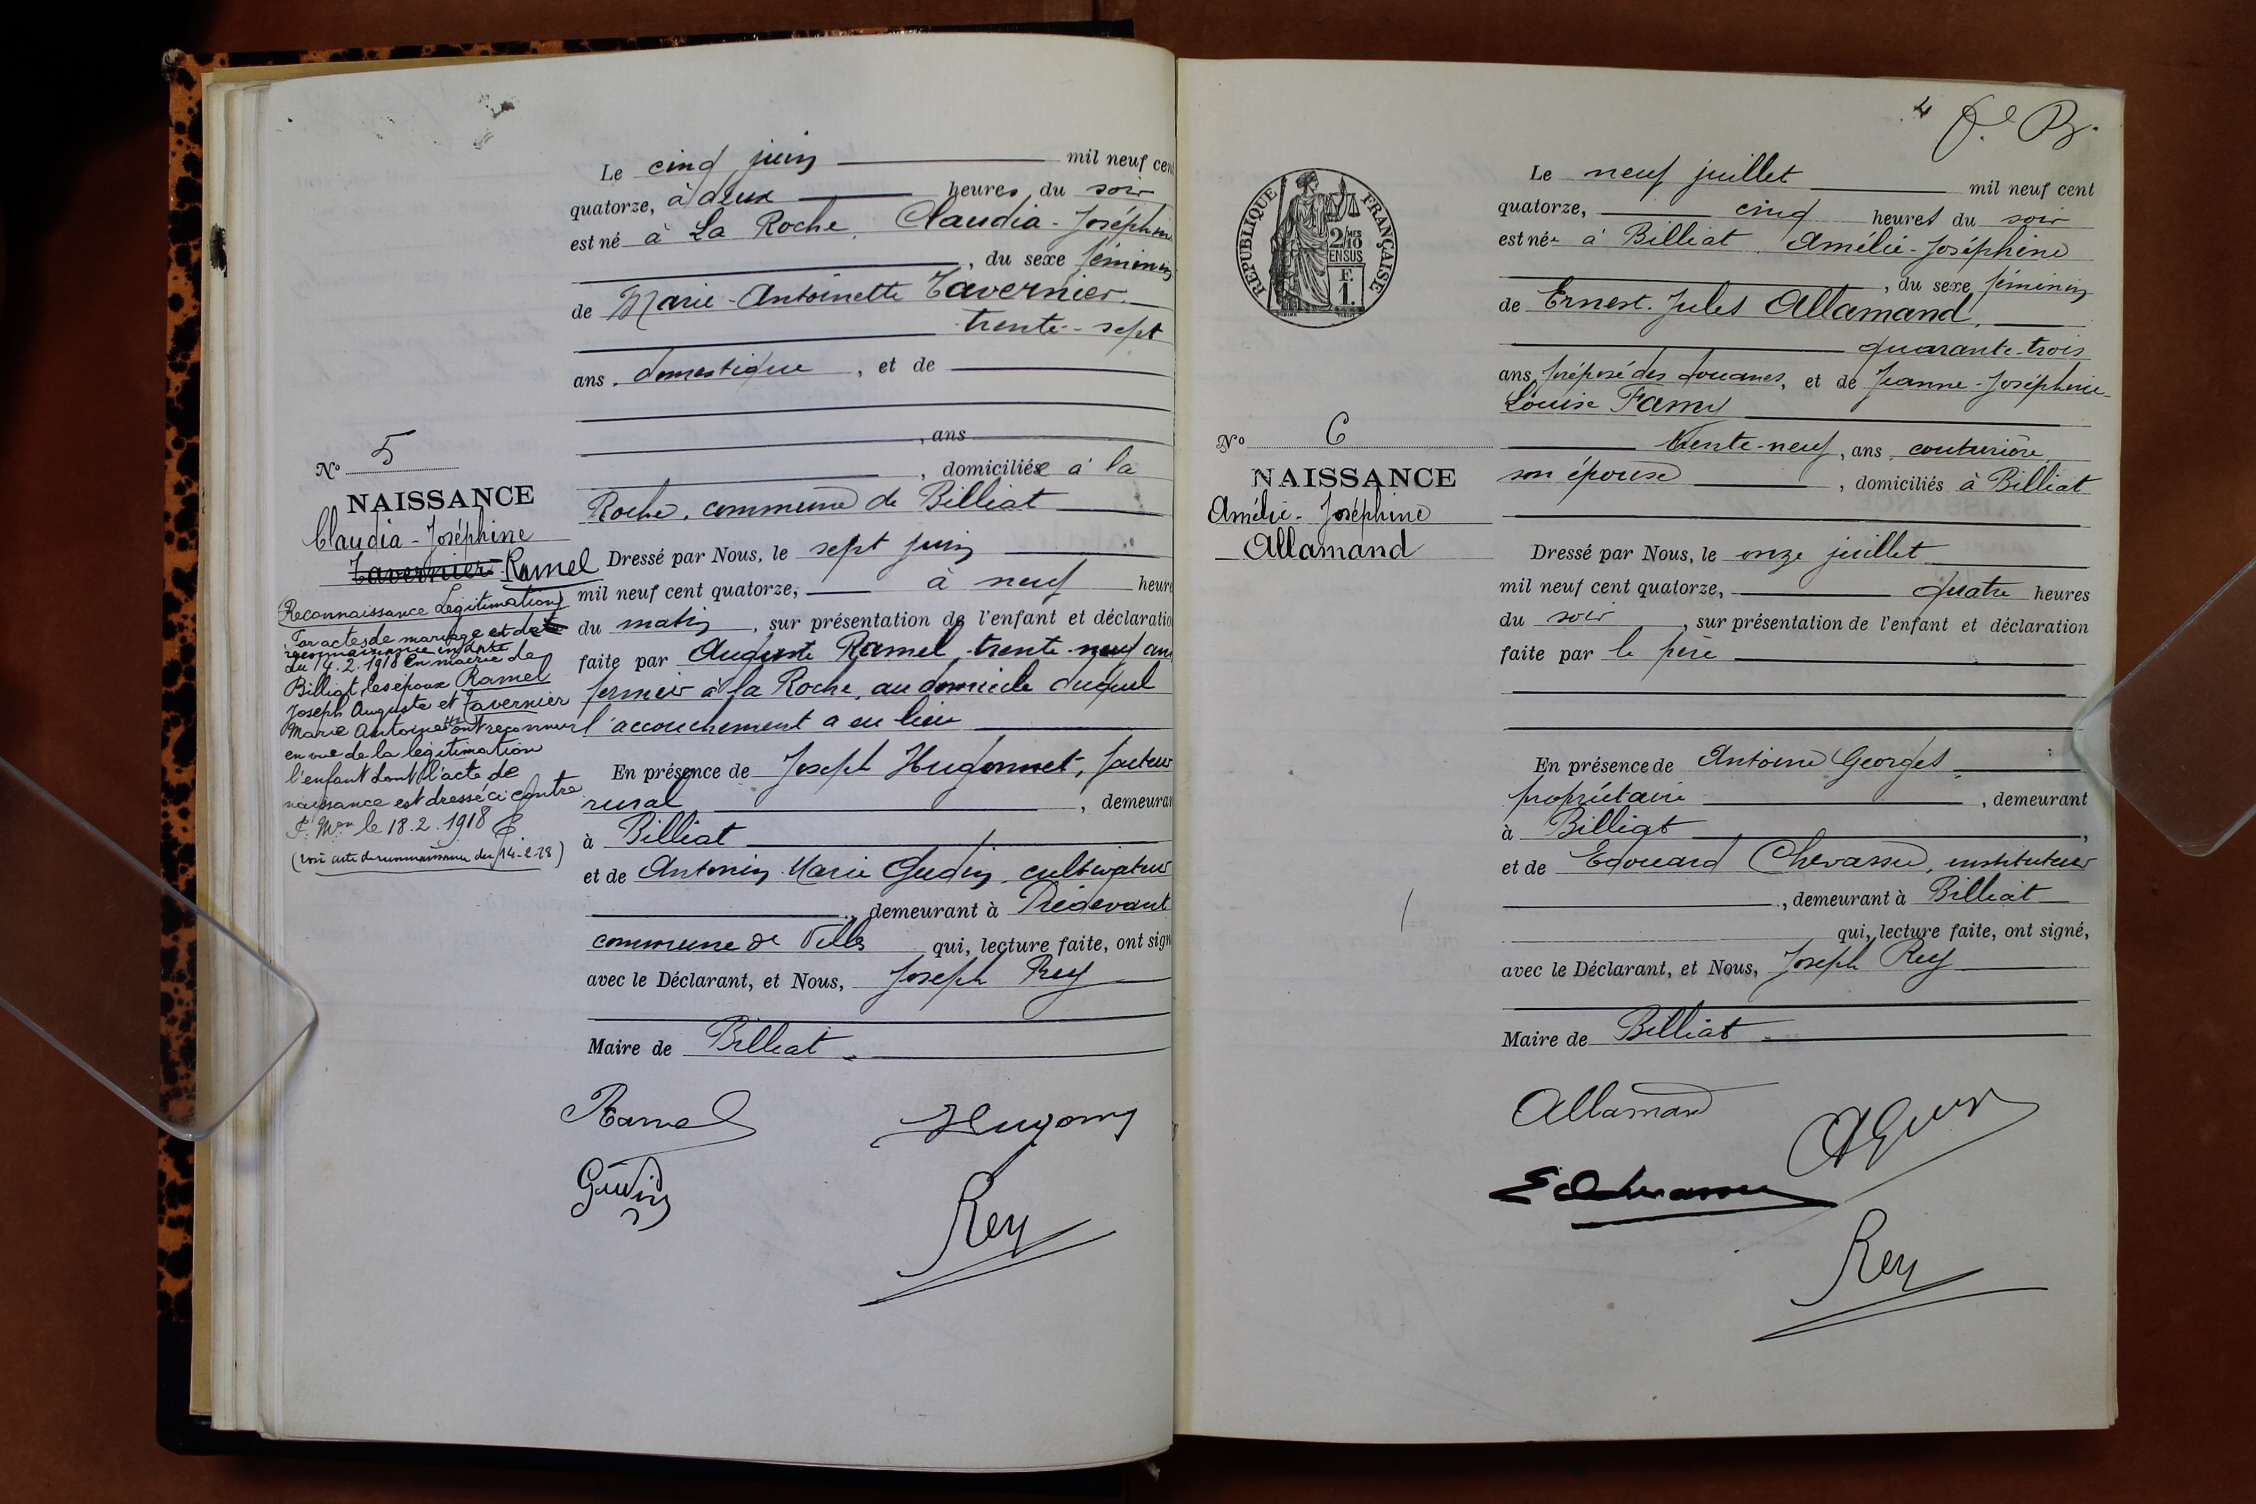 Le cinq juin mil neuf cent
quatorze, à deux heures du soir
est né à La Roche, Claudia-Joséphine
, du sexe féminin
de Marie-Antoinette Tavernier
trente-sept
ans, domestique, et de
, ans
, domiciliée à la
Roche, commune de Billiat
Nº 5
NAISSANCE
Claudia-Joséphine
Tavernier Ramel
Reconnaissance Légitimation
Par actes de mariage et de
reconnaissance
du 14.2.1918 en mairie de
Billiat, les époux Ramel
Joseph Auguste et Tavernier
Marie Antoinette ont reconnu
en vue de la légitimation
l'enfant dont l'acte de
naissance est dressé ci contre
le 18.2.1918
(voir acte de reconnaissance du 14-2-18)
Dressé par Nous, le sept juin
mil neuf cent quatorze, à neuf heure
du matin, sur présentation de l'enfant et déclaratio
faite par Auguste Ramel, trente-neuf ans
fermier à la Roche, au domicile duquel
l'accouchement a eu lieu
En présence de Joseph Hugonnet, facteur
rural, demeuran
à Billiat
et de Antonin Marie Gudin, cultivateur
, demeurant à
commune de Villes qui, lecture faite, ont sign
avec le Déclarant, et Nous, Joseph Rey
Maire de Billiat
Ramel
Hugonn
Gudin
Rey
4
RÉPUBLIQUE FRANÇAISE
2/10 MES
EN SUS
F.
1.
Le neuf juillet mil neuf cent
quatorze, cinq heures du soir
est née à Billiat Amélie-Joséphine
, du sexe féminin
de Ernest-Jules Allamand,
quarante-trois
ans, préposé des douanes, et de Jeanne-Joséphine-
Louise Famy
trente-neuf, ans, couturière,
son épouse, domiciliés à Billiat
Nº 6
NAISSANCE
Amélie-Joséphine
Allamand
Dressé par Nous, le onze juillet
mil neuf cent quatorze, quatre heures
du soir, sur présentation de l'enfant et déclaration
faite par le père
En présence de Antoine Georges,
propriétaire, demeurant
à Billiat,
et de Edouard Chevassu, instituteur
, demeurant à Billiat
qui, lecture faite, ont signé,
avec le Déclarant, et Nous, Joseph Rey
Maire de Billiat
Allamand
Ed Chevassu
Rey